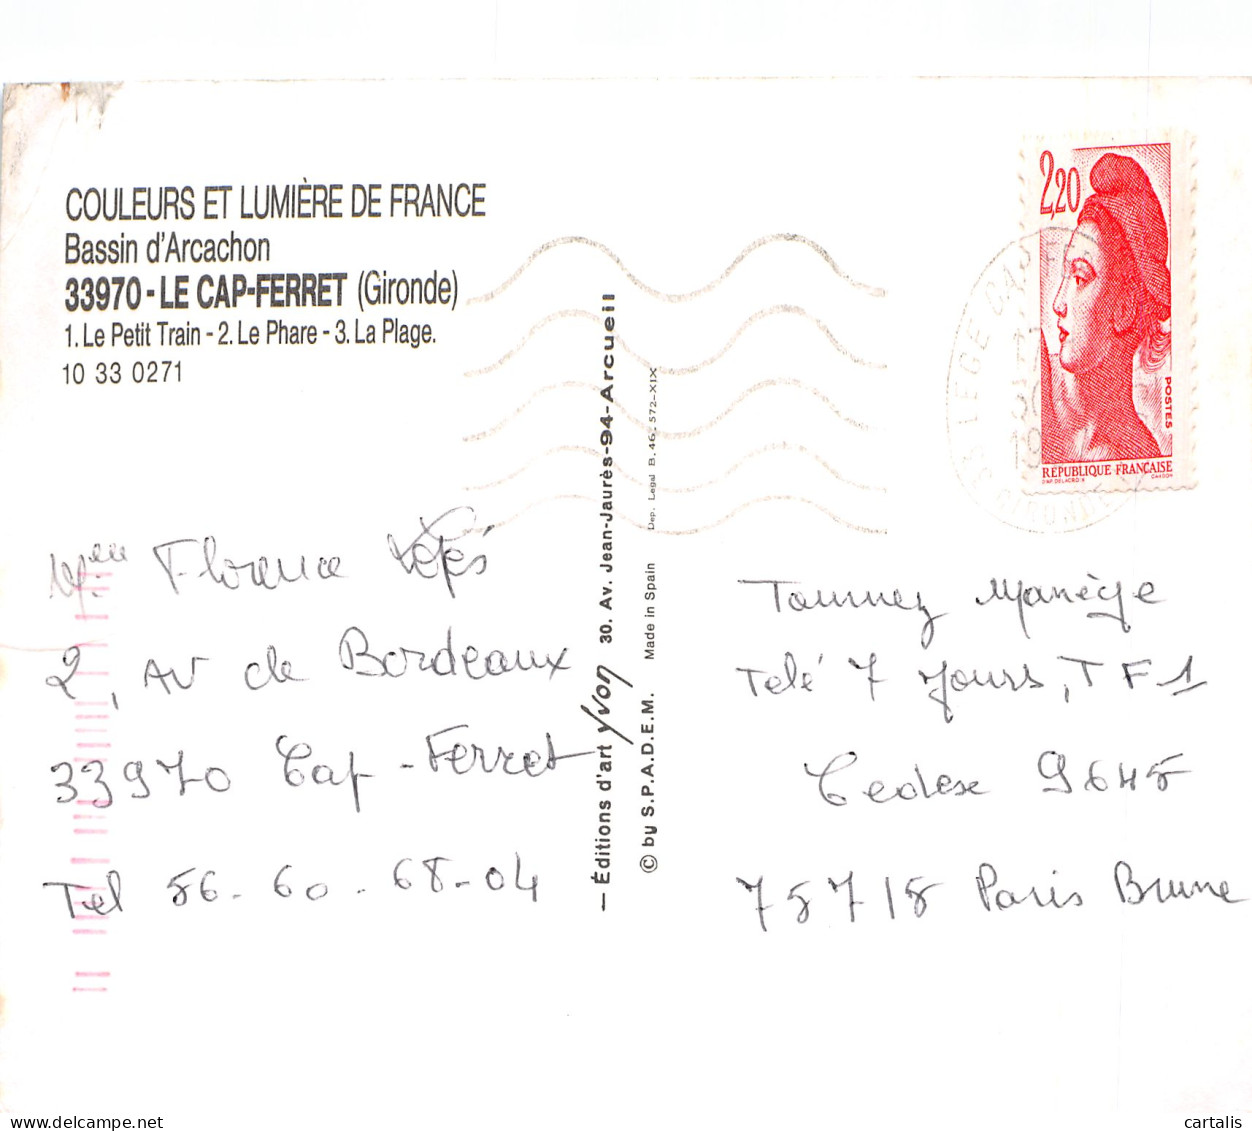 COULEURS ET LUMIÈRE DE FRANCE
Bassin d'Arcachon
33970 - LE CAP-FERRET (Gironde)
1. Le Petit Train - 2. Le Phare - 3. La Plage.
10 33 0271
Florence
2, AV de Bordeaux
33970 Cap-Ferret
Tel 56-60-68-04
— Éditions d'art yvon 30. Av. Jean-Jaurès-94-Arcueil
© by S.P.A.D.E.M. Made in Spain Dep. Legal B. 46. 572-XIX
2,20
POSTES
RÉPUBLIQUE FRANÇAISE
DAP. DELACROIX GANDON
33 LEGE CAP FERRET
GIRONDE
Tournez Manège
Télé 7 Jours, TF1
Cedex 9645
75715 Paris Brune
delcampe.net
cartalis